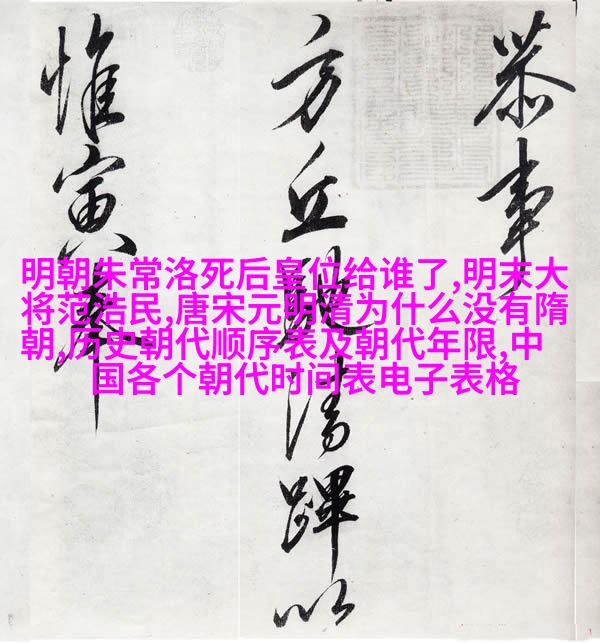 恭事
方丘清蹕以
惟寅
明朝朱常洛死后皇位给谁了,明末大
将范浩民,唐宋元明清为什么没有隋
朝,历史朝代顺序表及朝代年限,中
国各个朝代时间表电子表格